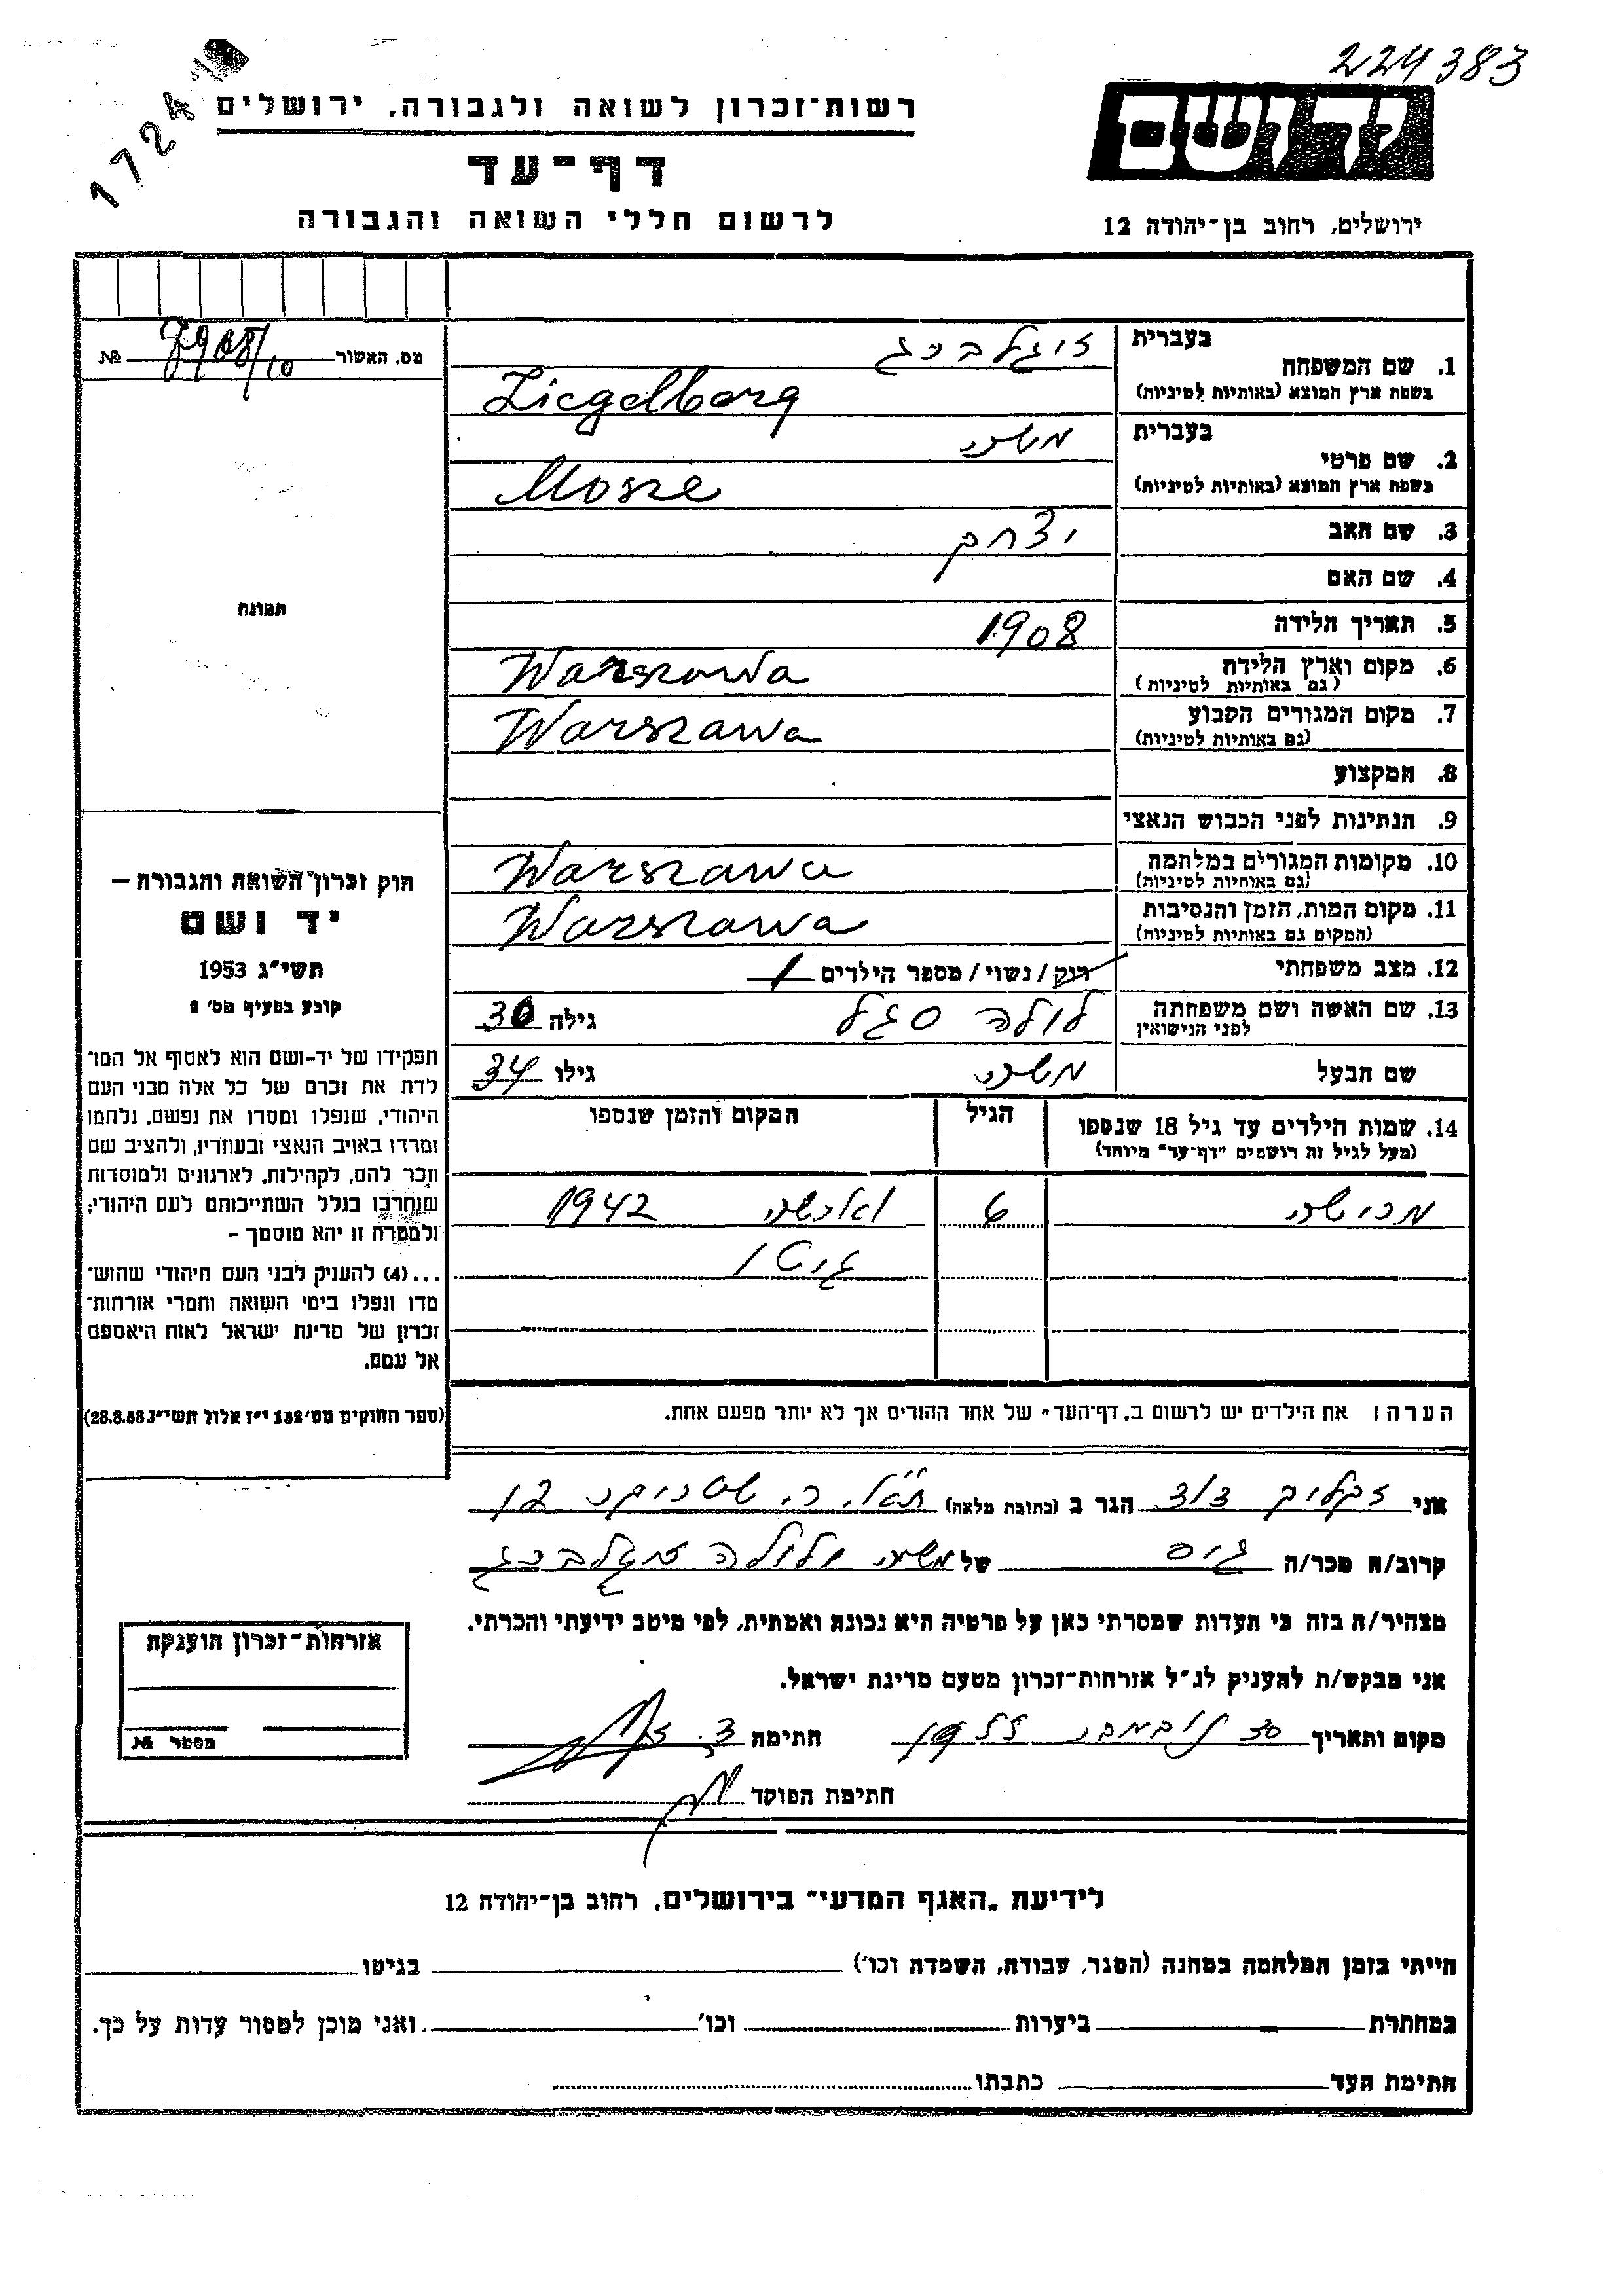 224383
172
רשות־זכרון לשואה ולגבורה, ירושלים
דף־עד
לרשום חללי השואה והגבורה
יד ושם
ירושלים, רחוב בן־יהודה 12
מס. האשור № /10
1. שם המשפחה בעברית זיגלברג
בשפת ארץ המוצא (באותיות לטיניות) Ziegelberg
2. שם פרטי בעברית
בשפת ארץ המוצא (באותיות לטיניות) Mosze
3. שם האב יצחק
4. שם האם
5. תאריך הלידה 1908
6. מקום וארץ הלידה (גם באותיות לטיניות) Warszawa
7. מקום המגורים הקבוע (גם באותיות לטיניות) Warszawa
8. המקצוע
9. הנתינות לפני הכבוש הנאצי
10. מקומות המגורים במלחמה (גם באותיות לטיניות) Warszawa
11. מקום המות, הזמן והנסיבות (המקום גם באותיות לטיניות) Warszawa
12. מצב משפחתי רווק / נשוי / מספר הילדים 1
13. שם האשה ושם משפחתה לפני הנישואין לולה סגל גילה 30
שם הבעל גילו 34
14. שמות הילדים עד גיל 18 שנספו הגיל המקום והזמן שנספו
(מעל לגיל זה רושמים "דף־עד" מיוחד)
6 1942
גיטו
הערה: את הילדים יש לרשום ב„דף־העד" של אחד ההורים אך לא יותר מפעם אחת.
תמונה
חוק זכרון השואה והגבורה –
יד ושם
תשי״ג 1953
קובע בסעיף מס׳ 2
תפקידו של יד-ושם הוא לאסוף אל המו־
לדת את זכרם של כל אלה מבני העם
היהודי, שנפלו ומסרו את נפשם, נלחמו
ומרדו באויב הנאצי ובעוזריו, ולהציב שם
וזכר להם, לקהילות, לארגונים ולמוסדות
שנחרבו בגלל השתייכותם לעם היהודי;
ולמטרה זו יהא מוסמך –
...(4) להעניק לבני העם היהודי שהוש־
מדו ונפלו בימי השואה והמרי אזרחות־
זכרון של מדינת ישראל לאות היאספם
אל עמם.
(ספר החוקים מס׳ 132 י״ז אלול תשי״ג 28.8.53)
אני הגר ב (כתובת מלאה) 12
קרוב/ה מכר/ה גיס של ולולה זיגלברג
מצהיר/ה בזה כי העדות שמסרתי כאן על פרטיה היא נכונה ואמתית, לפי מיטב ידיעתי והכרתי.
אני מבקש/ת להעניק לנ״ל אזרחות־זכרון מטעם מדינת ישראל.
מקום ותאריך 30 נובמבר חתימה
חתימת הפוקד
אזרחות־זכרון הוענקה
מספר №
לידיעת „האגף המדעי" בירושלים, רחוב בן־יהודה 12
הייתי בזמן המלחמה במחנה (הסגר, עבודה, השמדה וכו׳) בגיטו
במחתרת ביערות וכו׳ ואני מוכן למסור עדות על כך.
חתימת העד כתבתו